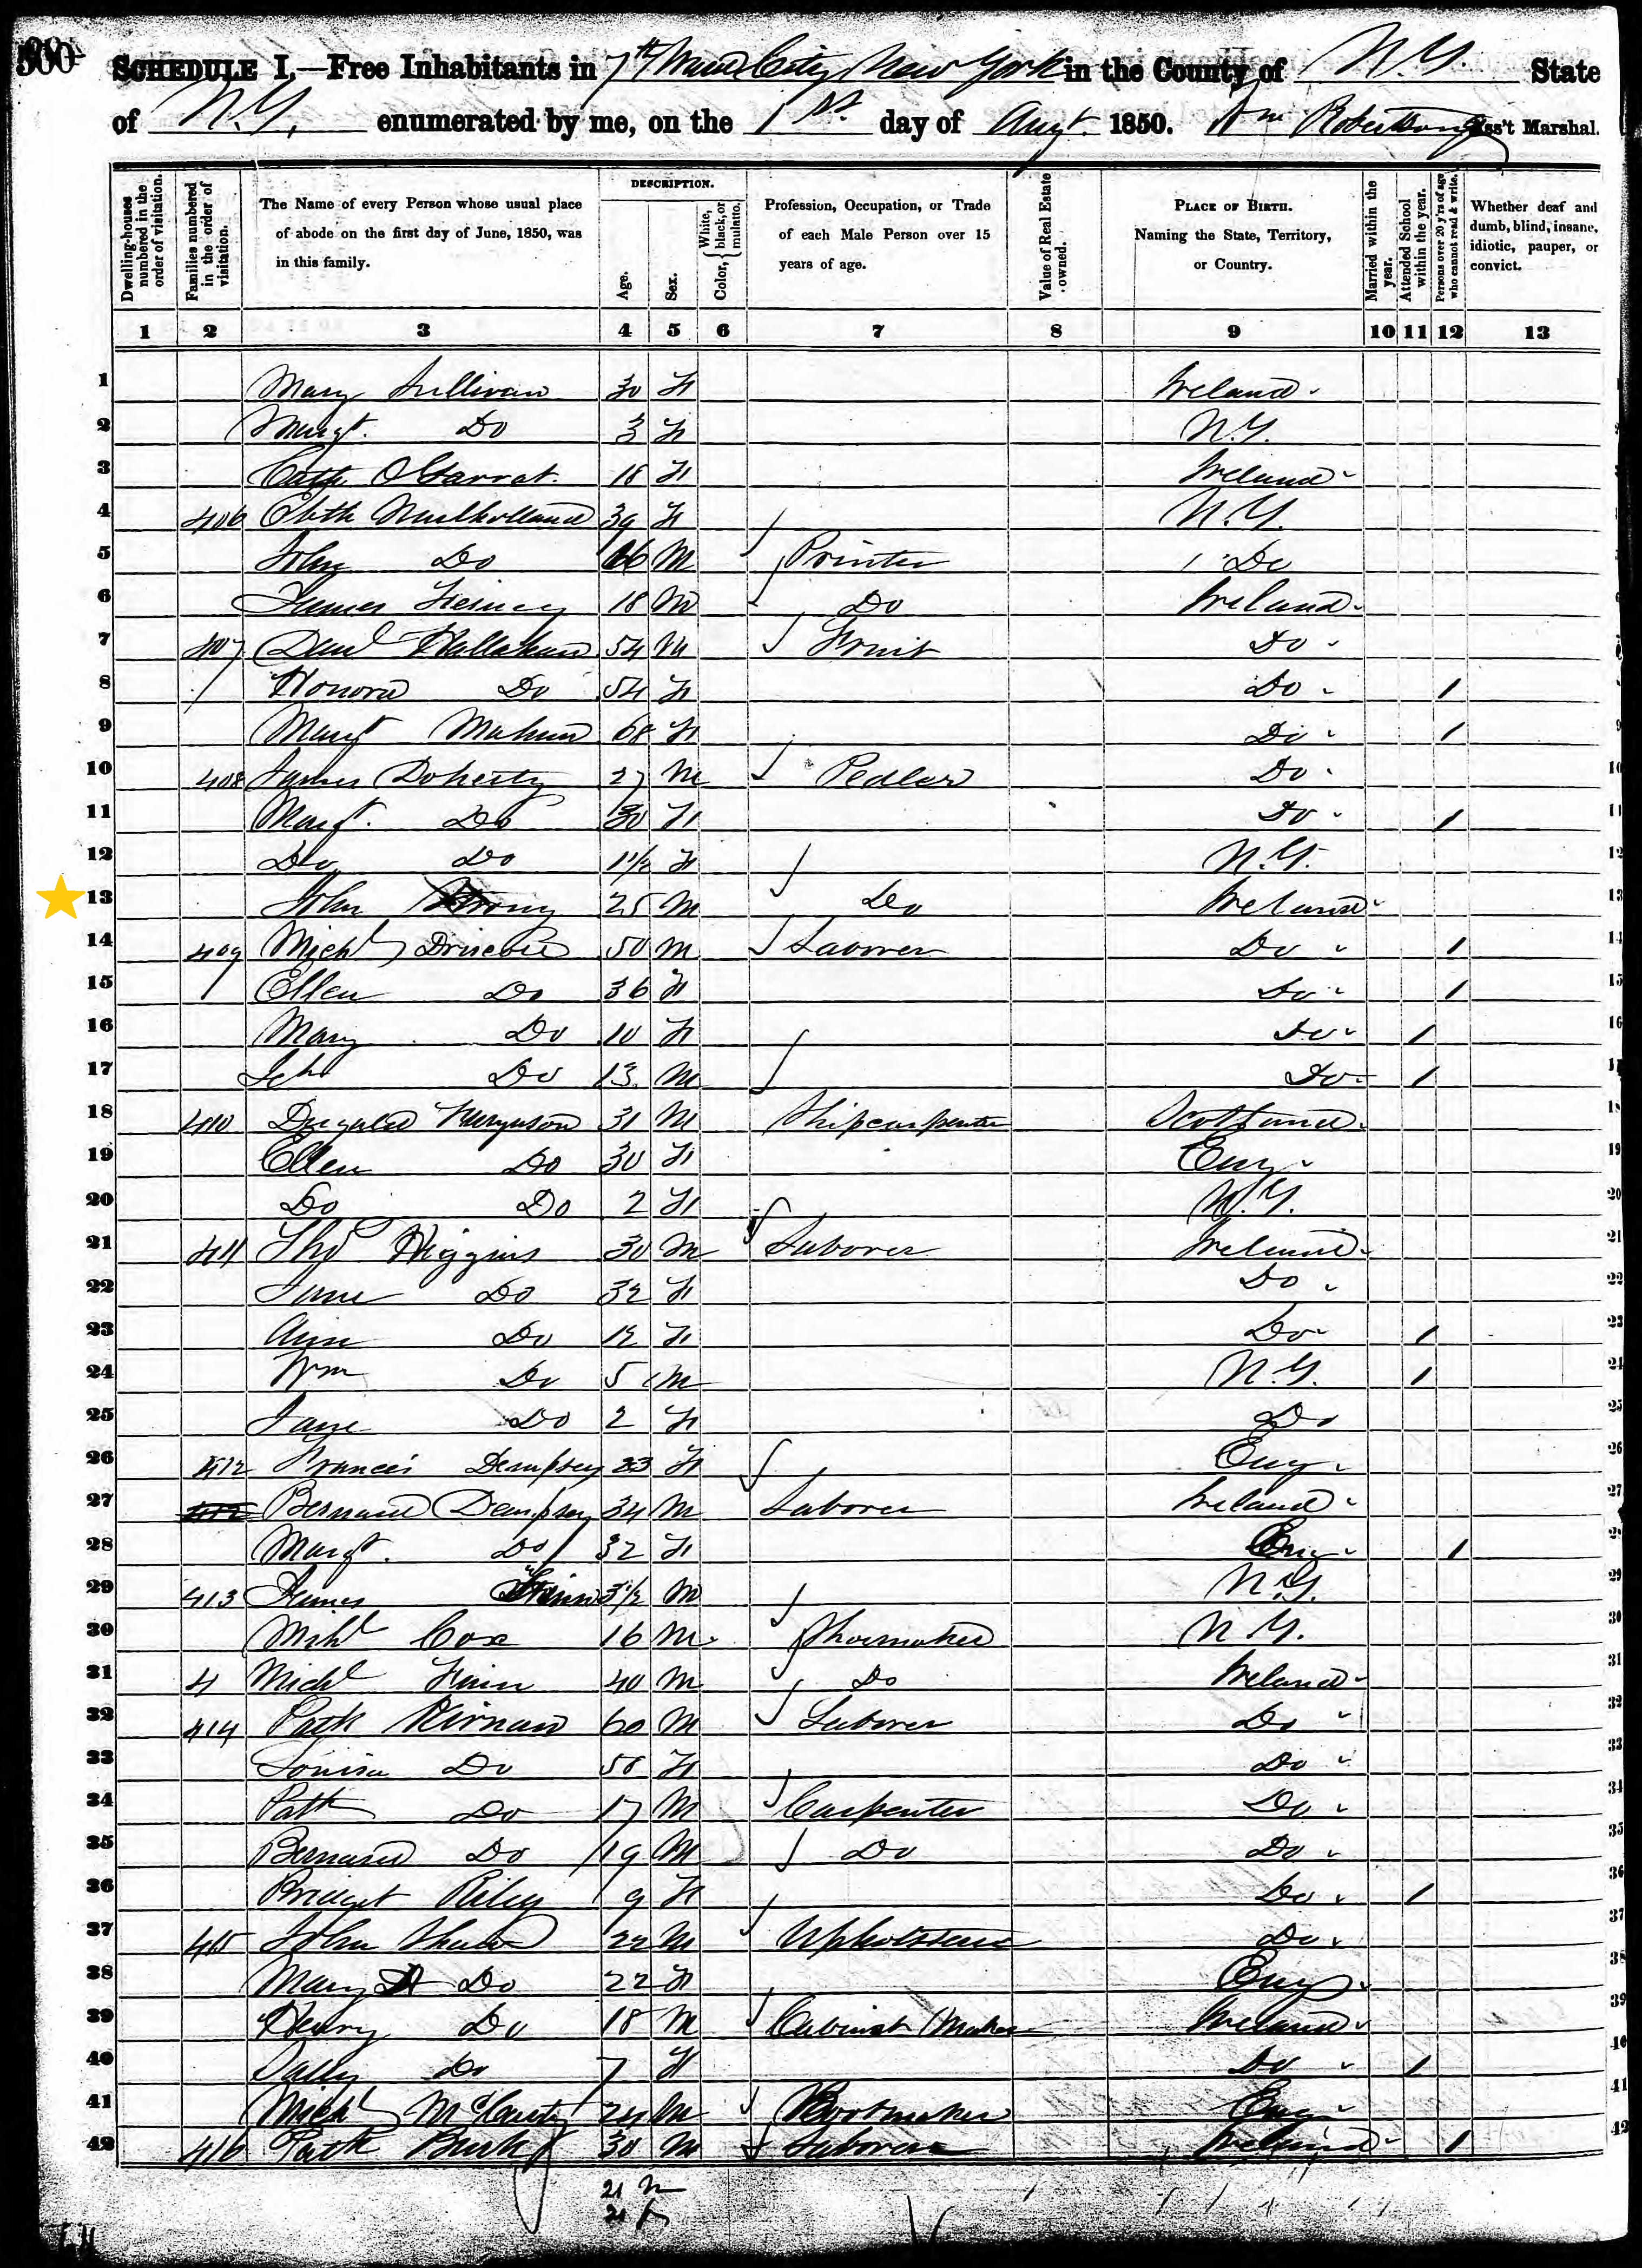 300
SCHEDULE I.—Free Inhabitants in 7th Ward City New York in the County of N.Y. State
of N.Y. enumerated by me, on the 1st day of Augt. 1850. Wm Robertson Ass't Marshal.
Dwelling-houses numbered in the order of visitation.
Families numbered in the order of visitation.
The Name of every Person whose usual place of abode on the first day of June, 1850, was in this family.
DESCRIPTION.
Age.
Sex.
Color, { White, black, or mulatto.
Profession, Occupation, or Trade of each Male Person over 15 years of age.
Value of Real Estate owned.
PLACE OF BIRTH. Naming the State, Territory, or Country.
Married within the year.
Attended School within the year.
Persons over 20 y'rs of age who cannot read & write.
Whether deaf and dumb, blind, insane, idiotic, pauper, or convict.
1 2 3 4 5 6 7 8 9 10 11 12 13
1 Mary Sullivan 30 F Ireland
2 Margt. Do 3 F N.Y.
3 Cath 18 F Ireland
4 406 Elbth Mulholland 39 F N.Y.
5 John Do 16 M Printer Do
6 James 18 M Do Ireland
7 407 Danl Hallahan 54 M Fruit Do
8 Honora Do 54 F Do /
9 Margt Mahun 68 F Do /
10 408 James Doherty 27 M Pedlar Do
11 Margt. Do 30 F Do /
12 Do Do 1 1/2 F N.Y.
13 John 25 M Do Ireland
14 409 Michl Driscoll 50 M Laborer Do /
15 Ellen Do 36 F Do /
16 Mary Do 10 F Do /
17 Jeh Do 13 M Do /
18 410 Dugald Furguson 31 M Shipcarpenter Scotland
19 Ellen Do 30 F Eng
20 Do Do 2 F N.Y.
21 411 Tho Higgins 30 M Laborer Ireland
22 Jane Do 32 F Do
23 Ann Do 12 F Do /
24 Wm Do 5 M N.Y. /
25 Jane Do 2 F Do
26 412 Frances Dempsey 23 F Eng
27 Bernard Dempsey 34 M Laborer Ireland
28 Margt. Do 32 F Eng /
29 413 James 3 1/2 M N.Y.
30 Michl Cox 16 M Shoemaker N.Y.
31 4 Michl Finn 40 M Do Ireland
32 414 Patk Kirnan 60 M Laborer Do
33 Louisa Do 58 F Do
34 Patk Do 17 M Carpenter Do
35 Bernard Do 19 M Do Do
36 Bridget Riley 9 F Do /
37 415 John Shaw 22 M Upholsterer Do
38 Mary Do 22 F Eng
39 Henry Do 18 M Cabinet Maker Ireland
40 Sally Do 7 F Do /
41 Michl McCarty 24 M Bootmaker Eng
42 416 Patk Burk 30 M Laborer Ireland /
21 m
21 f